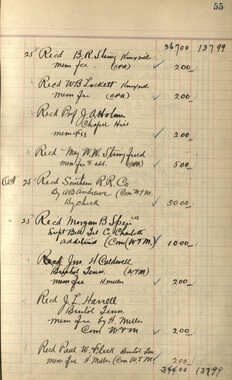 55
36700 1399
25 Recd B.R. Knoxville
mem fee (CPA) 200
Recd W B Lockett Knoxville
mem fee (CPA) 200
Recd Prof J. A Holmes
Chapel Hill
mem fee 200
Recd May W.W. Stringfield
mem fee & add. 500
Oct 25 Recd Southern R R Co
By AB Andrews (Com WTM)
By check 5000
25 Recd Morgan B
Supt Bell Tel C, Charlotte
additional (Com WTM) 1000
Recd Jno H Caldwell
Bristol Tenn. (WTM)
mem fee H Miller 200
Recd J. L. Harrell
Bristol Tenn.
mem fee by H. Miller
Com WTM 200
Recd Paul W. Bristol Tenn
mem fee H Miller (Com WTM) 200
1399